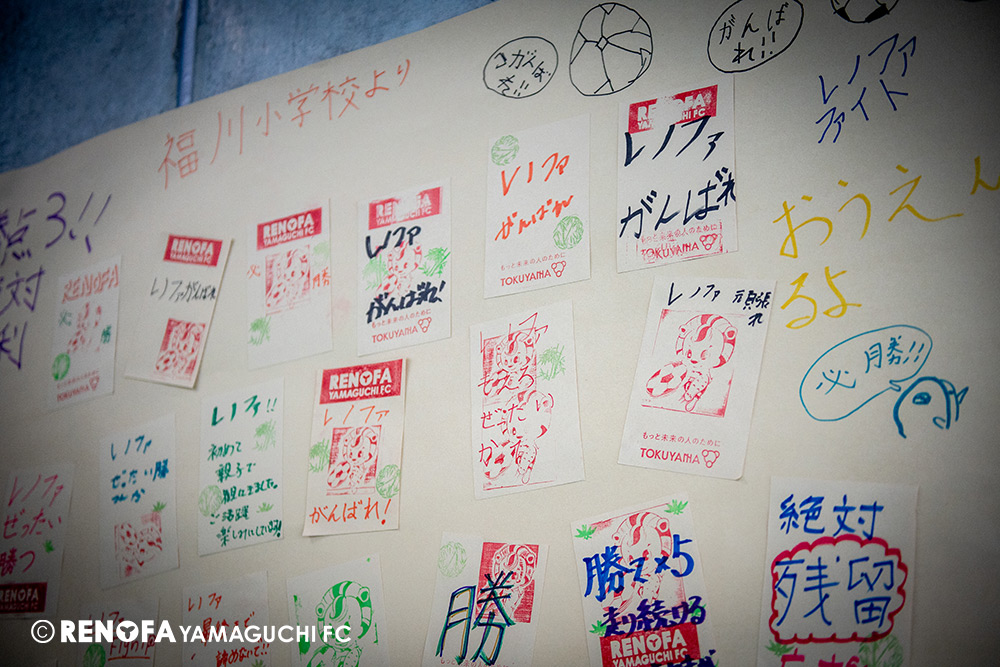 福川小学校より
がんばれ!!
がんばれ!!
レノファ
ファイト
おうえん
るよ
必勝!!
点3!!
絶対
利
RENOFA
必
勝
TOKUYAMA
RENOFA
YAMAGUCHI FC
レノファがんばれ
RENOFA
YAMAGUCHI FC
必
勝
RENOFA
YAMAGUCHI FC
レノファ
がんばれ!
もっと未来の人のために
TOKUYAMA
レノファ
がんばれ
もっと未来の人のために
TOKUYAMA
RENOFA
YAMAGUCHI FC
レノファ
がんばれ
もっと未来の人のために
TOKUYAMA
レノファ
ぜったい
勝つ
RENOFA
レノファ
ぜったい勝
レノファ!!
初めて
親子で
ご活躍
RENOFA
YAMAGUCHI FC
レノファ
がんばれ!
レノファ
ぜったい
レノファ 頑張れ
もっと未来の人のために
TOKUYAMA
レノファ
諦めないで!!
勝
勝て×5
走り続ける
RENOFA
YAMAGUCHI FC
絶対
残留
© RENOFA YAMAGUCHI FC